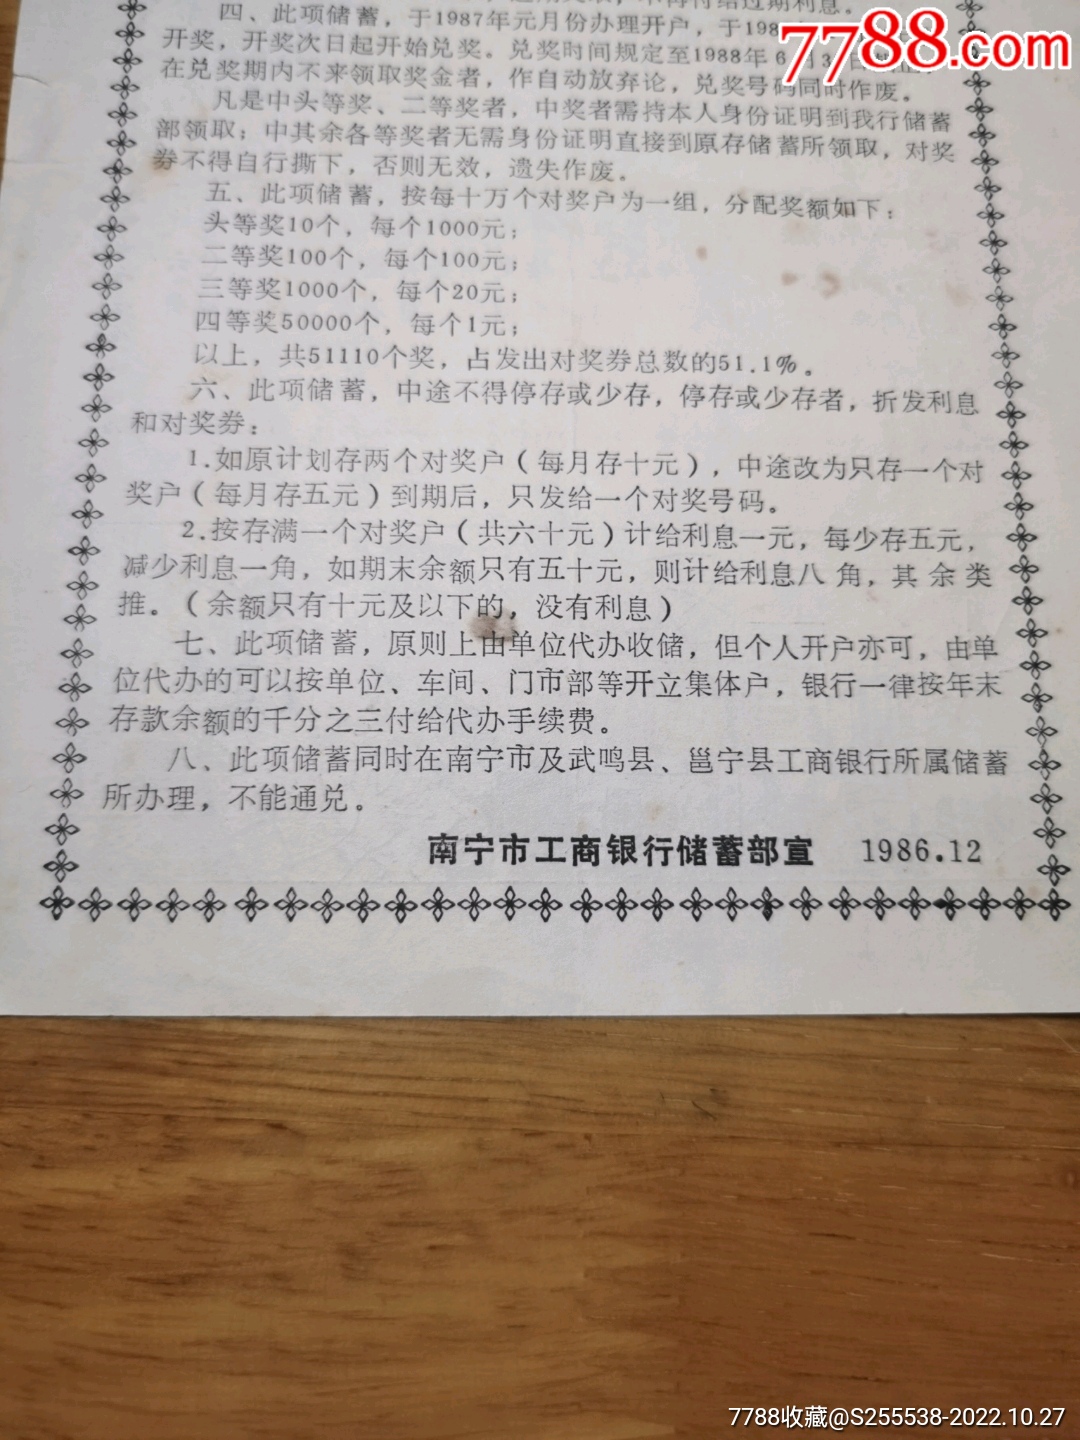 四、此项储蓄，于1987年元月份办理开户，于198
开奖，开奖次日起开始兑奖。兑奖时间规定至1988年6月3
在兑奖期内不来领取奖金者，作自动放弃论，兑奖号码同时作废。
凡是中头等奖、二等奖者，中奖者需持本人身份证明到我行储蓄
部领取；中其余各等奖者无需身份证明直接到原存储蓄所领取，对奖
券不得自行撕下，否则无效，遗失作废。
五、此项储蓄，按每十万个对奖户为一组，分配奖额如下：
头等奖10个，每个1000元；
二等奖100个，每个100元；
三等奖1000个，每个20元；
四等奖50000个，每个1元；
以上，共51110个奖，占发出对奖券总数的51.1%。
六、此项储蓄，中途不得停存或少存，停存或少存者，折发利息
和对奖券：
1.如原计划存两个对奖户（每月存十元），中途改为只存一个对
奖户（每月存五元）到期后，只发给一个对奖号码。
2.按存满一个对奖户（共六十元）计给利息一元，每少存五元，
减少利息一角，如期末余额只有五十元，则计给利息八角，其余类
推。（余额只有十元及以下的，没有利息）
七、此项储蓄，原则上由单位代办收储，但个人开户亦可，由单
位代办的可以按单位、车间、门市部等开立集体户，银行一律按年末
存款余额的千分之三付给代办手续费。
八、此项储蓄同时在南宁市及武鸣县、邕宁县工商银行所属储蓄
所办理，不能通兑。
南宁市工商银行储蓄部宣 1986.12
7788.com
7788收藏@S255538-2022.10.27